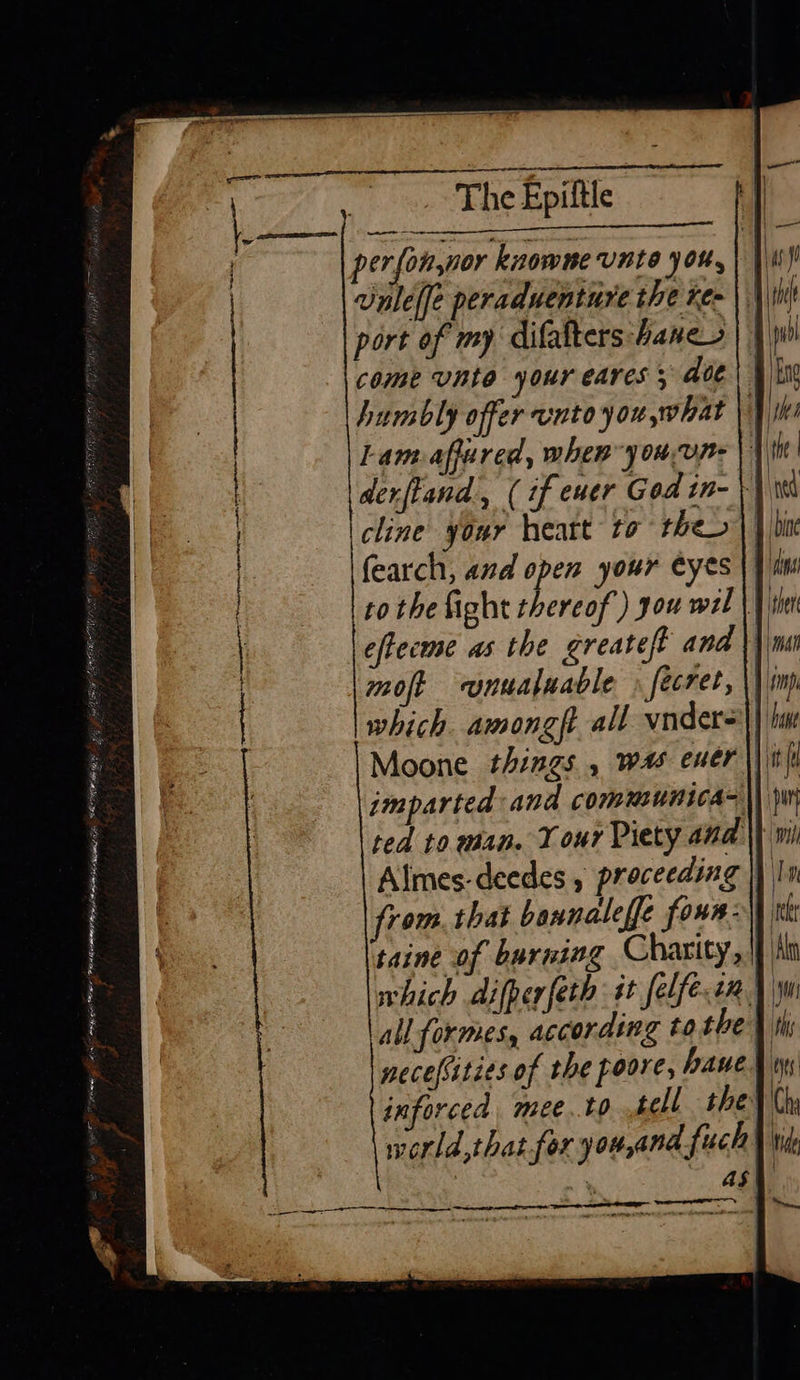 The Epiſtle
perſon, nor knowne vnto you,
vnleſſe peraduenture the re-
port of my diſaſters haue
come vnto your eares; doe
humbly offer vnto you, what
I am aſſured, when you vn-
derſtand, (if euer God in-
cline your heart to the
ſearch, and open your eyes
to the ſight thereof) you wil
eſteeme as the greateſt and
moſt vnualuable ſecret,
which amongſt all vnder-
Moone things, was euer
imparted and communica-
ted to man. Your Piety and
Almes-deedes, proceeding
from that boundleſſe foun-
taine of burning Charity,
which diſperſeth it ſelfe in
all formes, according to the
neceſſities of the poore, haue
inforced mee to tell the
world, that for you, and ſuch
as